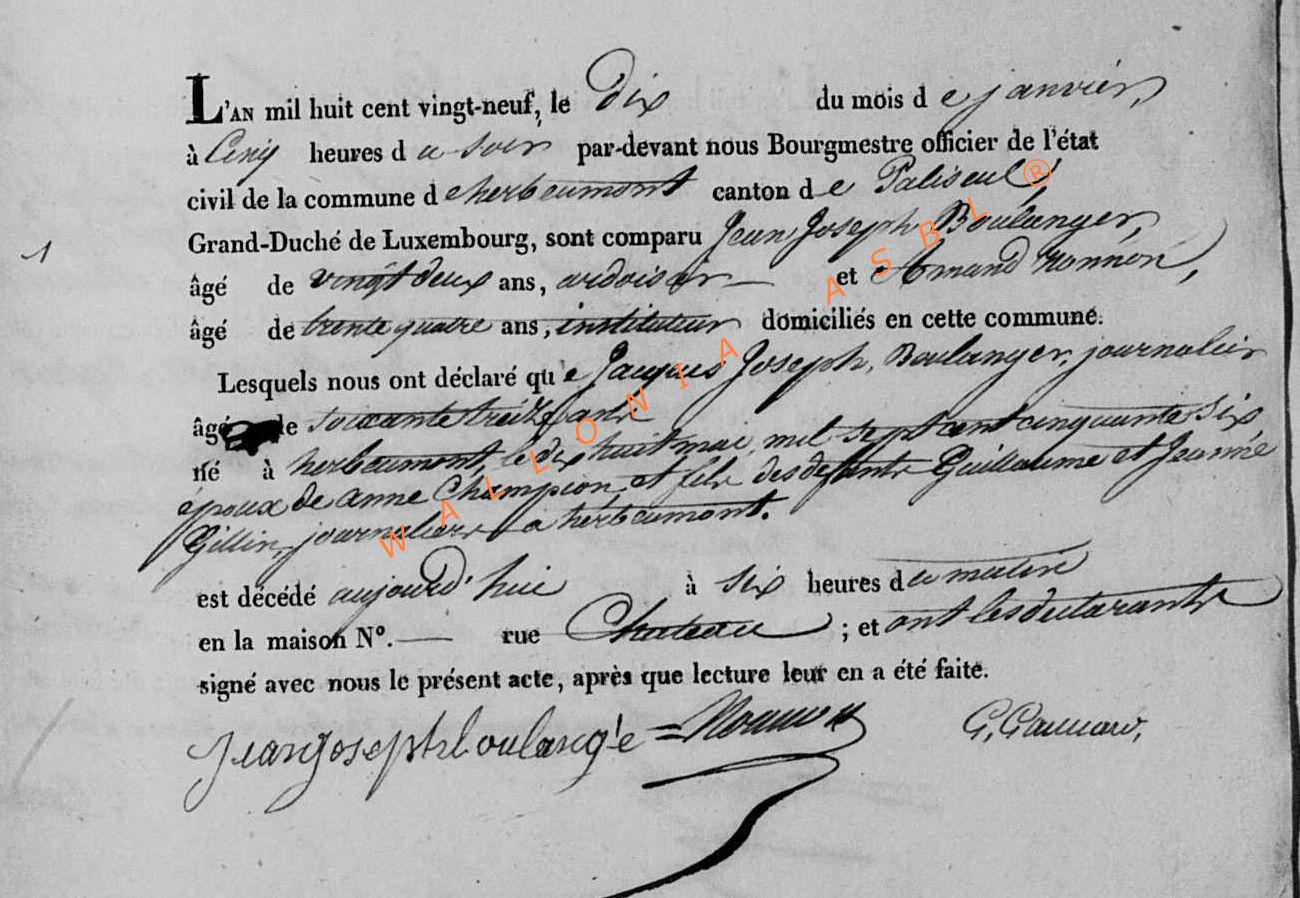 L'AN mil huit cent vingt-neuf, le dix du mois de janvier,
à Cinq heures du soir par-devant nous Bourgmestre officier de l'état
civil de la commune d'herbeumont canton de Paliseul,
Grand-Duché de Luxembourg, sont comparu Jean Joseph Boulanger,
1
âgé de vingt deux ans, ardoisier et Amand Nonnon,
âgé de trente quatre ans, instituteur domiciliés en cette commune.
Lesquels nous ont déclaré que Jacques Joseph Boulanger, journalier
âgé de soixante treize ans
né à herbeumont, le dix huit mai mil sept cent cinquante six
époux de anne Champion et fils des defunts Guillaume et Jeanne
Gillin, journaliers a herbeumont.
est décédé aujourd'hui à six heures du matin
en la maison N°. — rue Chateau ; et ont les declarants
signé avec nous le présent acte, après que lecture leur en a été faite.
jean joseph boulangé = Nonnon
WALLONIA ASBL ®